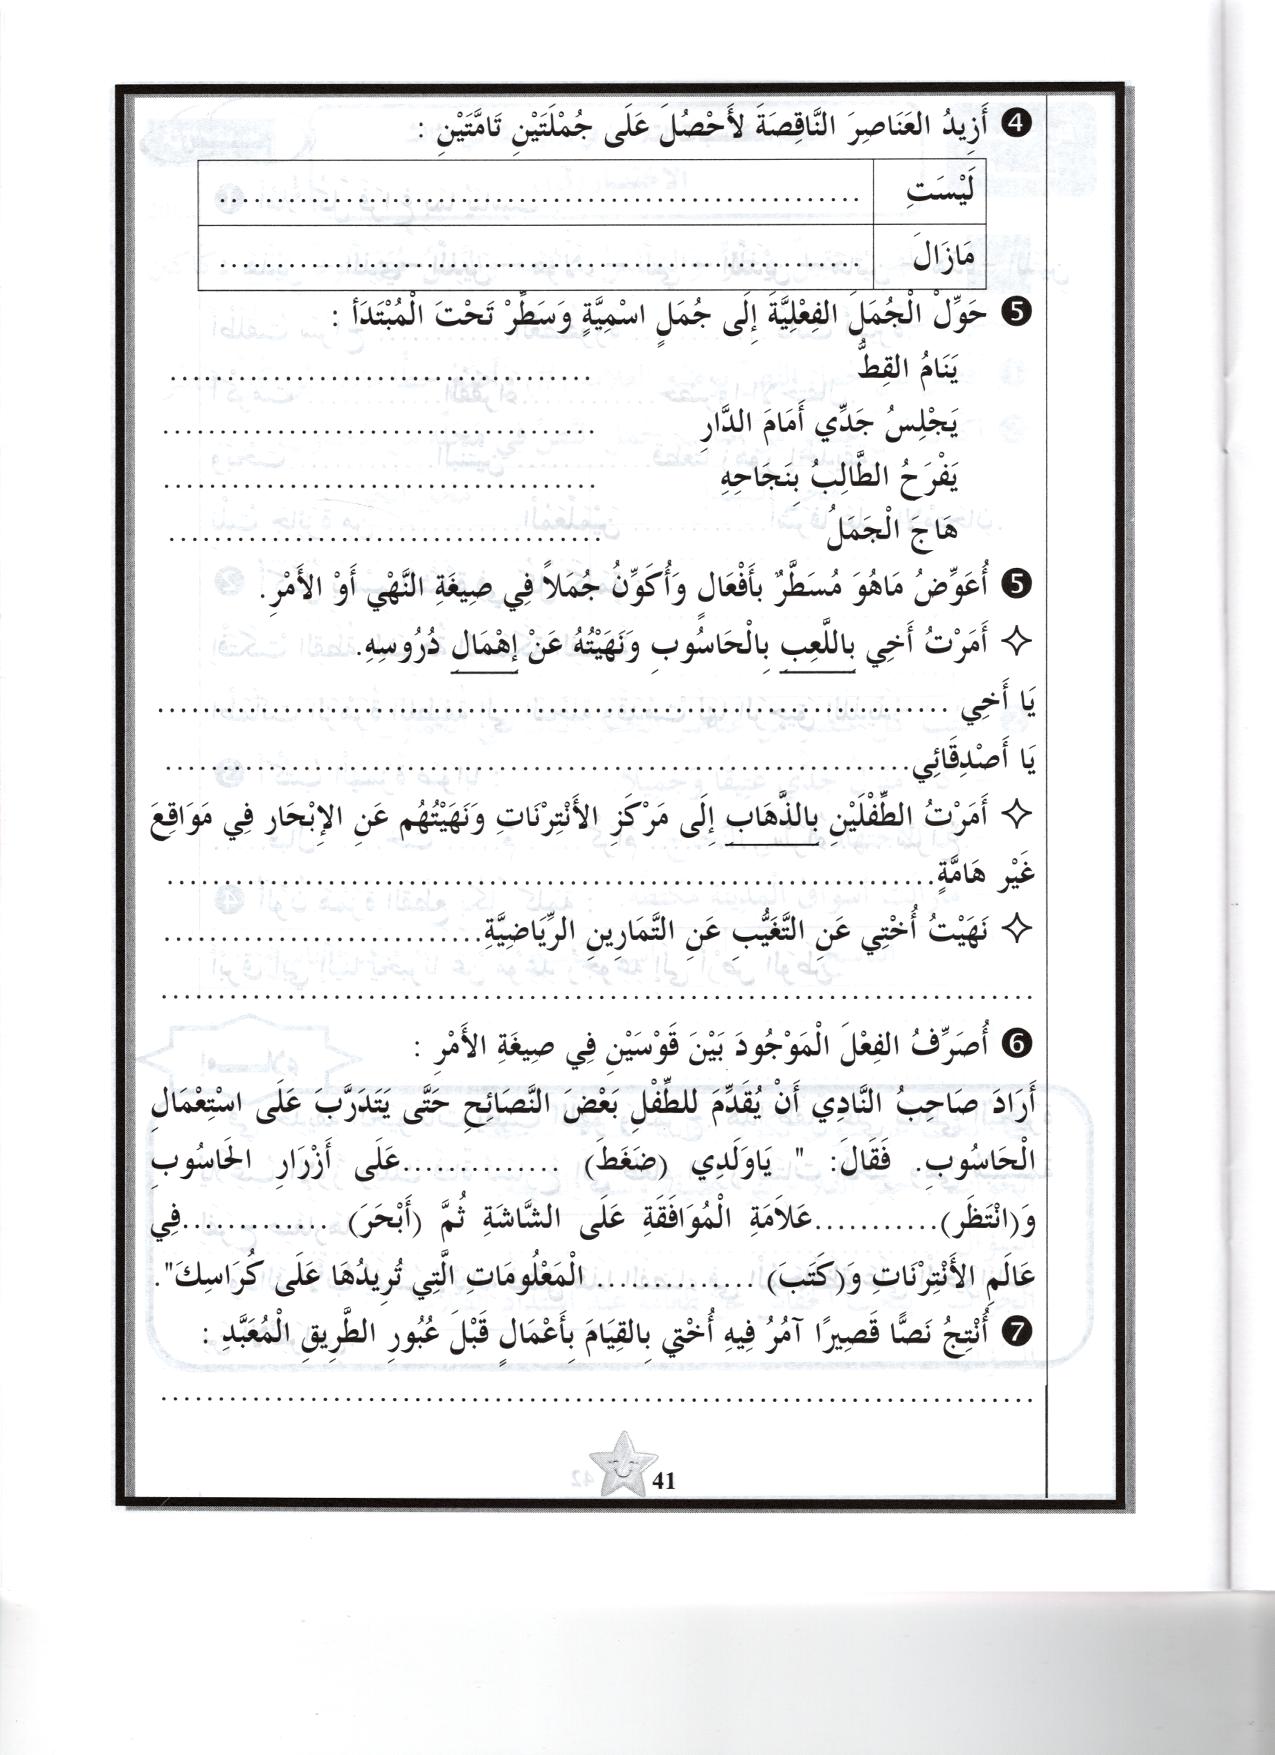 ❹ أَزِيدُ العَنَاصِرَ النَّاقِصَةَ لأَحْصُلَ عَلَى جُمْلَتَيْنِ تَامَّتَيْنِ :
لَيْسَتِ ............................................................
مَازَالَ ............................................................
❺ حَوِّلْ الْجُمَلَ الفِعْلِيَّةَ إِلَى جُمَلٍ اسْمِيَّةٍ وَسَطِّرْ تَحْتَ الْمُبْتَدَأ :
يَنَامُ القِطُّ ........................................
يَجْلِسُ جَدِّي أَمَامَ الدَّارِ ........................................
يَفْرَحُ الطَّالِبُ بِنَجَاحِهِ ........................................
هَاجَ الْجَمَلُ ........................................
❺ أُعَوِّضُ مَاهُوَ مُسَطَّرٌ بِأَفْعَالٍ وَأُكَوِّنُ جُمَلاً فِي صِيغَةِ النَّهْي أَوْ الأَمْرِ.
✧ أَمَرْتُ أَخِي بِاللَّعِبِ بِالْحَاسُوبِ وَنَهَيْتُهُ عَنْ إِهْمَالِ دُرُوسِهِ.
يَا أَخِي ........................................................................
يَا أَصْدِقَائِي......................................................................
✧ أَمَرْتُ الطِّفْلَيْنِ بِالذَّهَابِ إِلَى مَرْكَزِ الأَنْتِرْنَاتِ وَنَهَيْتُهُم عَنِ الإِبْحَار فِي مَوَاقِعَ
غَيْر هَامَّةٍ........................................................................
✧ نَهَيْتُ أُخْتِي عَنِ التَّغَيُّبِ عَنِ التَّمَارِينِ الرِّيَاضِيَّةِ..............................
................................................................................
❻ أُصَرِّفُ الفِعْلَ الْمَوْجُودَ بَيْنَ قَوْسَيْنِ فِي صِيغَةِ الأَمْرِ :
أَرَادَ صَاحِبُ النَّادِي أَنْ يُقَدِّمَ للطِّفْلِ بَعْضَ النَّصَائِحِ حَتَّى يَتَدَرَّبَ عَلَى اسْتِعْمَالِ
الْحَاسُوبِ. فَقَالَ: " يَاوَلَدِي (ضَغَطَ) ..............عَلَى أَزْرَارِ الحَاسُوبِ
وَ(انْتَظَر)...........عَلَامَةِ الْمُوَافَقَةِ عَلَى الشَّاشَةِ ثُمَّ (أَبْحَرَ) .............فِي
عَالَمِ الأَنْتِرْنَاتِ وَ(كَتَبَ) .............. الْمَعْلُومَاتِ الَّتِي تُرِيدُهَا عَلَى كُرَاسِكَ".
❼ أُنْتِجُ نَصًّا قَصِيرًا آمُرُ فِيهِ أُخْتِي بِالقِيَامَ بِأَعْمَالٍ قَبْلَ عُبُورِ الطَّرِيقِ الْمُعَبَّدِ :
................................................................................
41